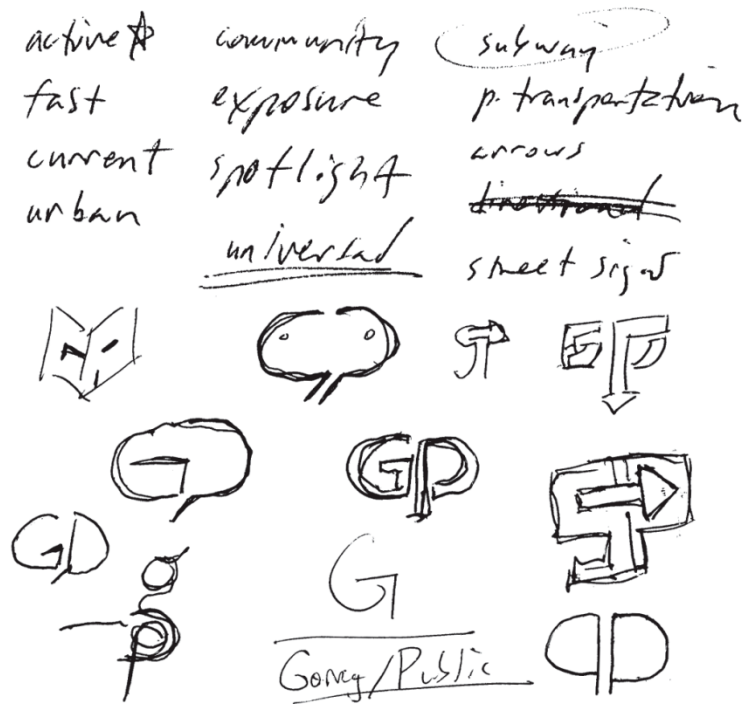 active
fast
current
urban
community
exposure
spotlight
universal
subway
p. transportation
arrows
street signs
G
GP
GP
G
/Public